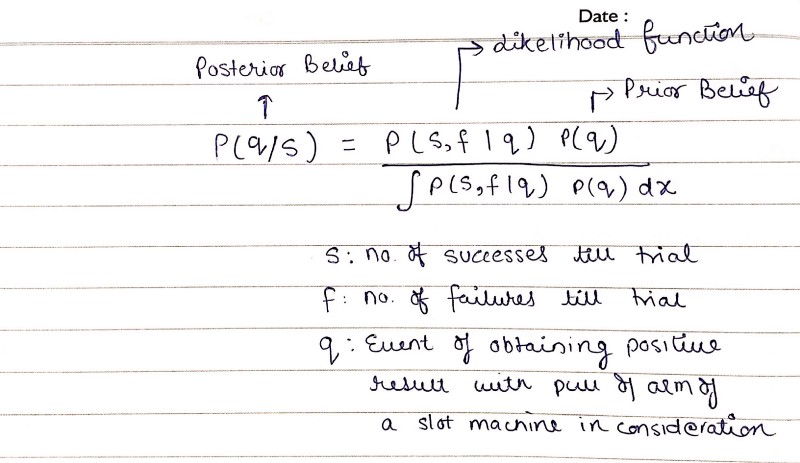 Date :
Likelihood function
Posterior Belief
Prior Belief
P(q/s) = P(s,f|q) P(q)
∫P(s,f|q) P(q) dx
s: no. of successes till trial
f: no. of failures till trial
q: Event of obtaining positive
result with pull of arm of
a slot machine in consideration